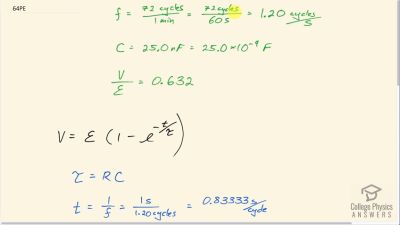 64PE
f = 72 cycles / 1 min = 72 cycles / 60 s = 1.20 cycles/s
C = 25.0 nF = 25.0 × 10⁻⁹ F
V/ℰ = 0.632
V = ℰ (1 - e^(-t/τ))
τ = RC
t = 1/f = 1 s / 1.20 cycles = 0.83333 s/cycle
College Physics
ANSWERS